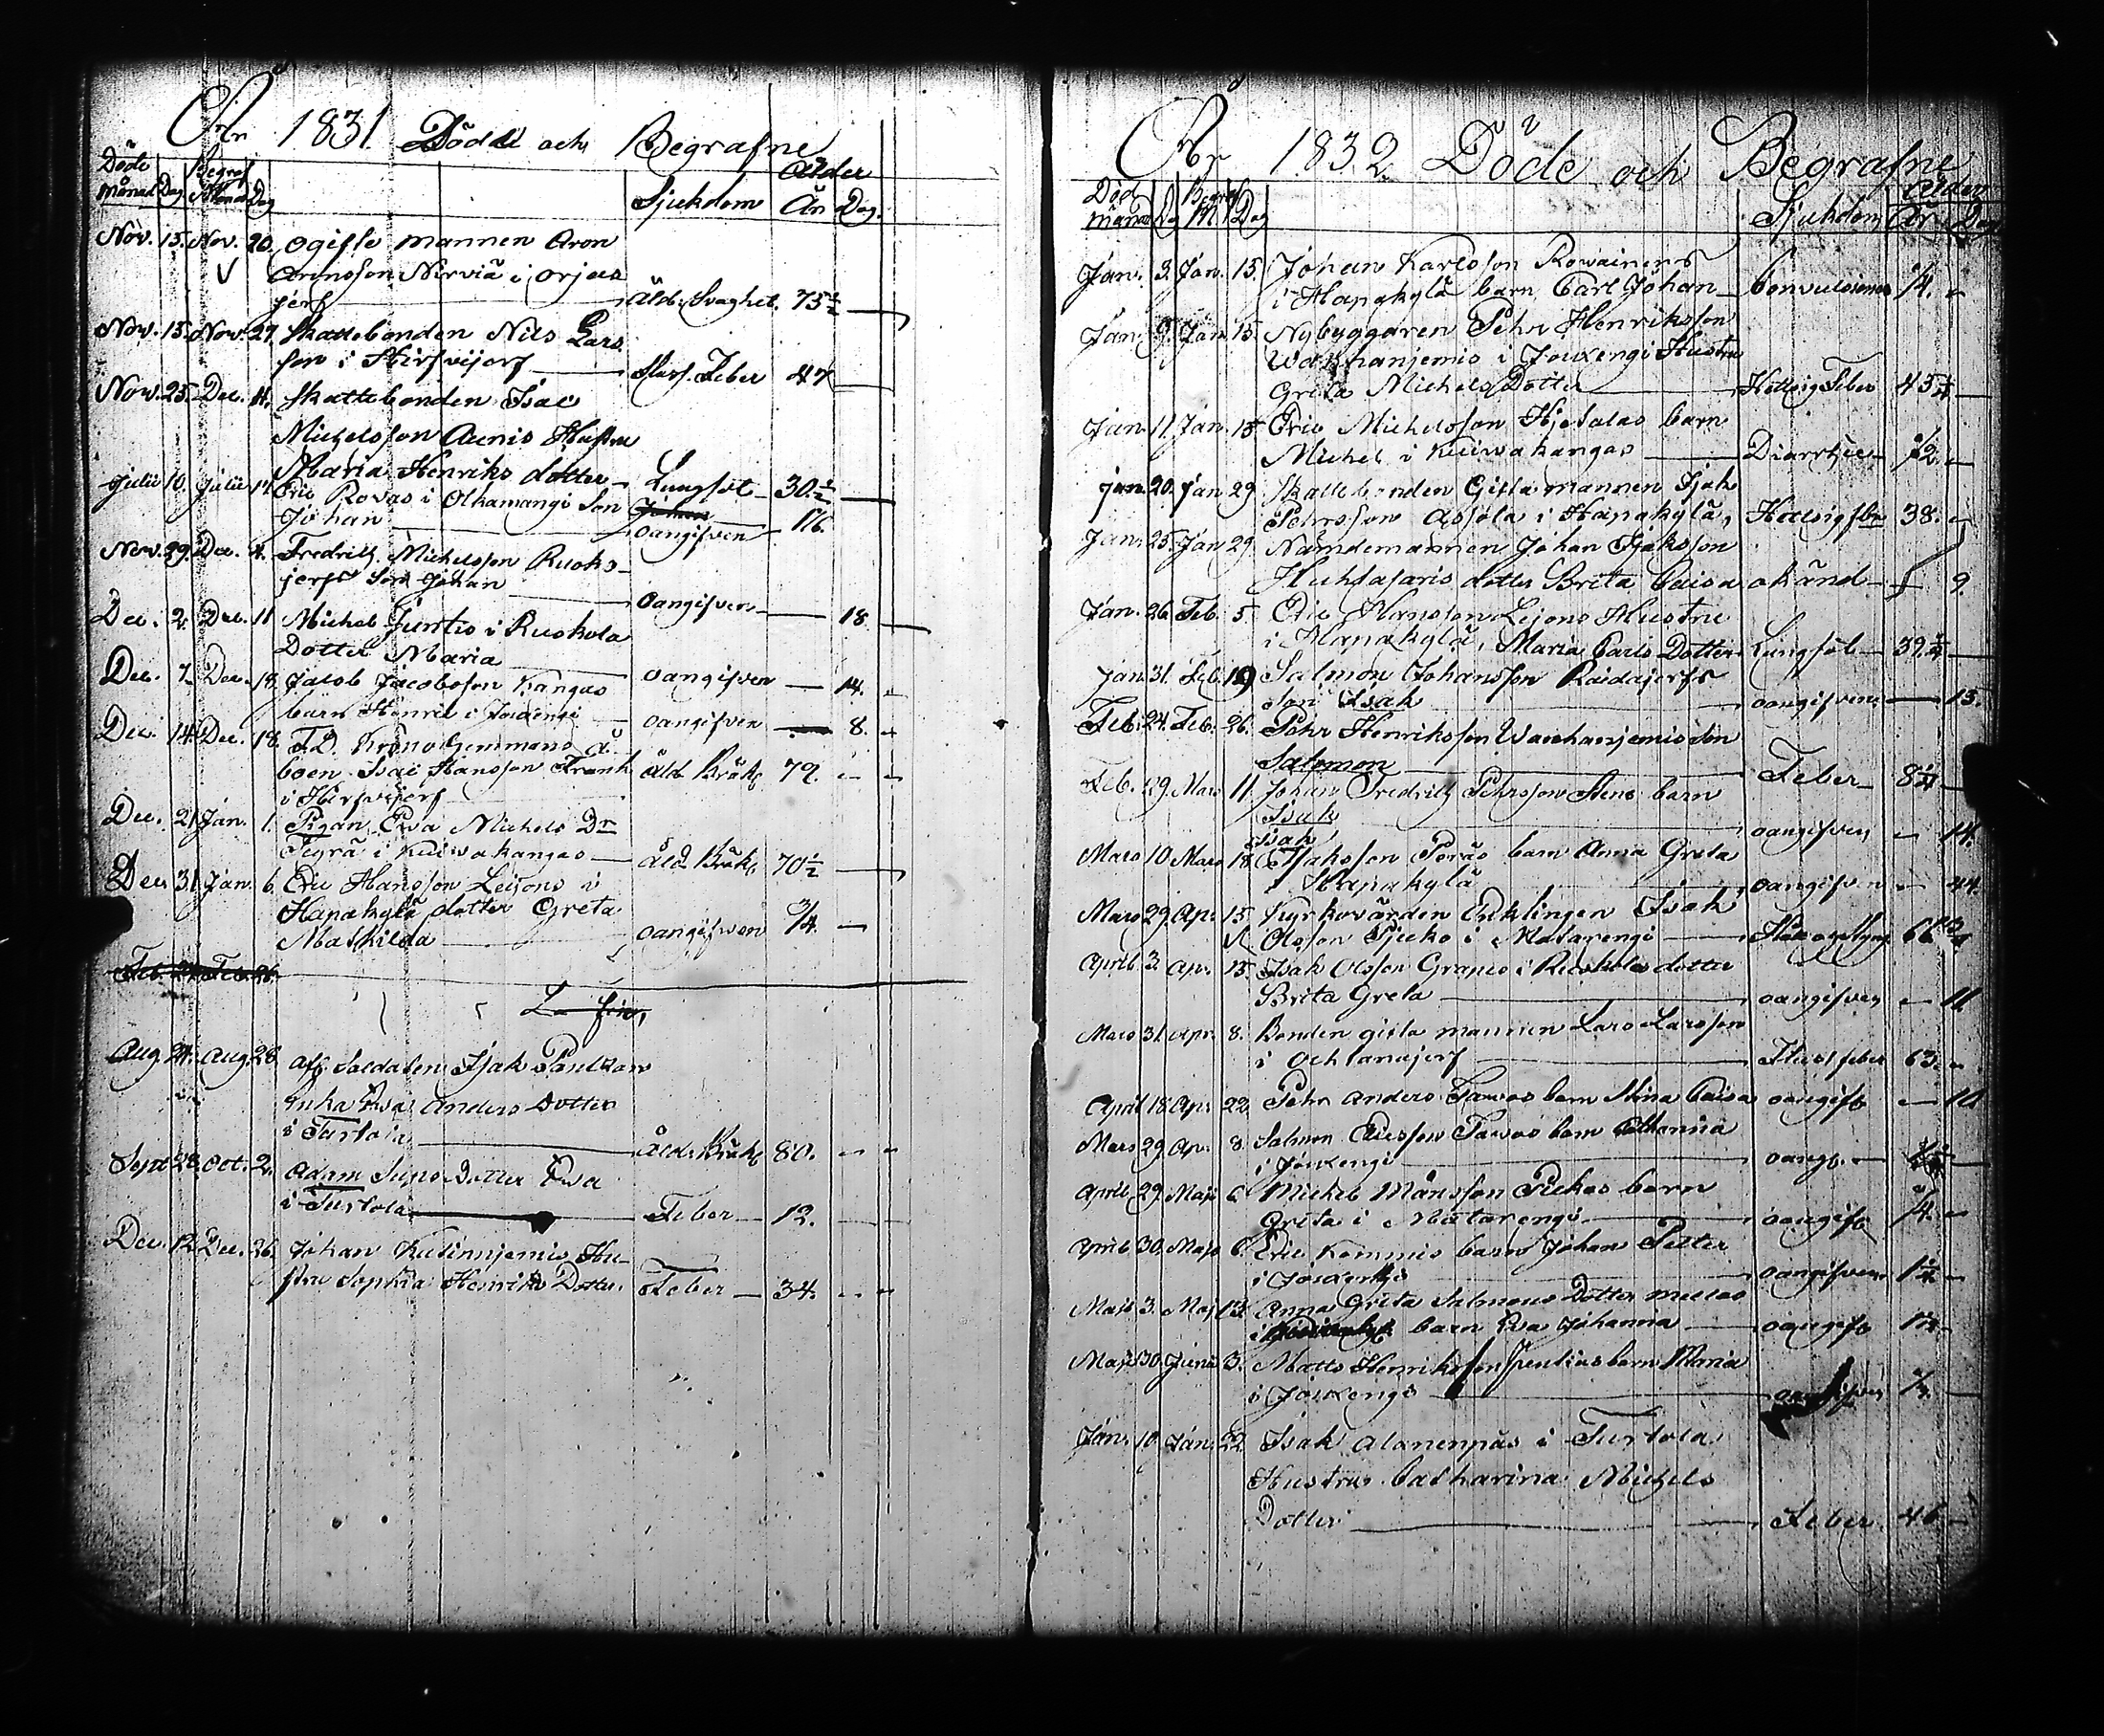 År 1831 Döde och Begrafne
Döde Begraf Ålder
Månad Dag Månad Dag Sjukdom År Dag.
Nov. 15. Nov. 20. Ogifte mannen Aron
V Aronsson Nirviä i Orjas
jerf Åld. Svaghet. 75½
Nov. 15. Nov. 27. Skattebonden Nils Lars
son i Hirsvijerf Feber 47
Nov. 25. Dec. 11. Skattebonden Isac
Michelsson Aunis Hustru
Maria Henriks dotter Lungsot 30½
Julii 10. Julii 17. Eric Rovas i Olkamangi Son
Johan oangifven 16.
Nov. 29. Dec. 4. Fredrik Michelsson Ruoks-
jerfs Son Johan oangifven
Dec. 2. Dec. 11 Michel Juntis i Ruskola
Dotter Maria oangifven 18.
Dec. 7. Dec. 18. Jacob Jacobsson Kangas
barn Henric i Jouxengi oangifven 14.
Dec. 14. Dec. 18. F.D. Krono 8.
boen Isac Hansson Frank Åld. Bräkl. 79.
i Hirsvijerf
Dec. 21. Jan. 1. Pigan Eva Michels Dr
i Kuivakangas Åld. Bräkl. 70½
Dec. 31. Jan. 6. Eric Hansson Leijons i
Hapakylä dotter Greta
Mathilda oangifven ¾
Feb. 24. Feb. 26.
Aug. 21. Aug. 28. Afsk. Soldaten Isak
Enka Eva Anders Dotter
i Turtola Åld. Bräkl. 80.
Sept. 28. Oct. 2. Adam Dotter Eva
i Turtola Feber 12.
Dec. 12. Dec. 26. Johan Kutinnjemis Hu-
stru Sophia Henriks Dotter. Feber 34.
År 1832 Döde och Begrafne
Död Begraf Ålder
Månad Dag M. Dag Sjukdom År Dag
Jan. 3. Jan. 15. Johan Karlsson Rowainens
i Hapakylä barn Carl Johan Convulsioner ¼.
Jan. 9. Jan. 15. Nybyggaren Pehr Henriksson
i Jouxengi Hustru
Greta Michels Dotter Hetsig Feber 45
Jan. 11. Jan. 15. Eric Michelsson Hjetalas barn
Michel i Kuivakangas Diarrhee ½.
Jan. 20. Jan. 29. Skattebonden Gifta mannen Isak
Pehrsson Assola i Hapakylä, Hetsig fbr 38.
Jan. 25. Jan. 29. Nämdemannen Johan Isaksson
Huhtasaris dotter Brita Caisa okänd 9.
Jan. 26. Feb. 5. Eric Hansson Lejons Hustru
i Hapakylä, Maria Carls Dotter. Lungsot 39
Jan. 31. Feb. 19 Salmon Johansson Raidajerfs
son Isak oangifven 13.
Feb. 24. Feb. 26. Pehr Henriksson son
Salomon Feber 8
Feb. 29. Mars 11. Johan Fredrik Pehrsson Stens barn
Isak oangifven 14.
Isak
Mars 10. Mars 18. Isaksson Poräs barn Anna Greta
i Hapakylä oangifven 44
Mars 29. Apr. 15. Kyrkovärden Enklingen Isak
Olsson i Matarengi Håll och Styng
April 3. Apr. 15. Isak Olsson Grapes i Ruskola dotter
Brita Greta oangifven 11
Mars 31. Apr. 8. Bonden gifta mannen Lars Larsson
i Ochtanajerf feber 63.
April 18. Apr. 22. Pehr Anders Tawas barn Stina Caisa oangifv. 10
Mars 29. Apr. 8. Salmon Ericsson Tawas barn
i Jouxengi oangf.
April 29. Maji 6. Michel Månsson Piekas barn
Greta i Matarengi oangifv. ¼.
April 30. Maji 6. Eric Kemmis barn Johan Petter
i Jouxengi oangifven 1
Maji 3. Maji 13. Anna Greta Salmons Dotter
i barn Eva Johanna oangifv.
Maji 30. Junii 3. Matts Henriksson barn Maria
i Jouxengi oangifven
Jan. 10. Jan. 22. Isak Alanenpäs i Turtola
Hustru Catharina Michels
Dotter Feber. 46